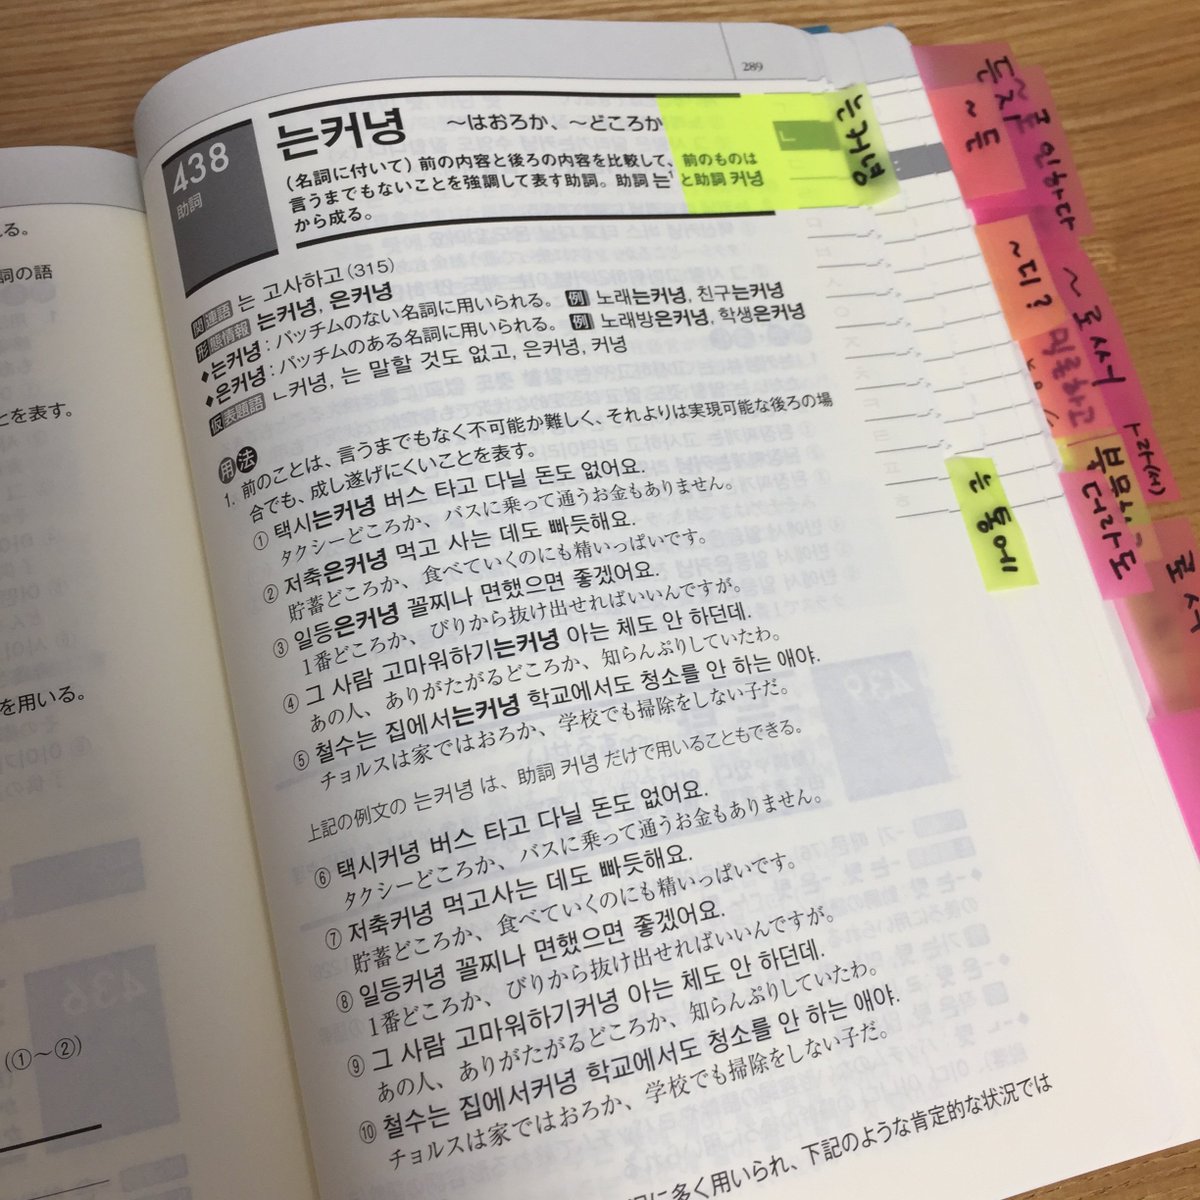 289
438
助詞
는커녕 〜はおろか、〜どころか
(名詞に付いて)前の内容と後ろの内容を比較して、前のものは
言うまでもないことを強調して表す助詞。助詞 는¹ と助詞 커녕
から成る。
関連語 는 고사하고(315)
形態情報 는커녕, 은커녕
◆는커녕:パッチムのない名詞に用いられる。 例 노래는커녕, 친구는커녕
◆은커녕:パッチムのある名詞に用いられる。 例 노래방은커녕, 학생은커녕
仮表題語 ㄴ커녕, 는 말할 것도 없고, 은커녕, 커녕
用法
1. 前のことは、言うまでもなく不可能か難しく、それよりは実現可能な後ろの場
合でも、成し遂げにくいことを表す。
① 택시는커녕 버스 타고 다닐 돈도 없어요.
タクシーどころか、バスに乗って通うお金もありません。
② 저축은커녕 먹고 사는 데도 빠듯해요.
貯蓄どころか、食べていくのにも精いっぱいです。
③ 일등은커녕 꼴찌나 면했으면 좋겠어요.
1番どころか、びりから抜け出せればいいんですが。
④ 그 사람 고마워하기는커녕 아는 체도 안 하던데.
あの人、ありがたがるどころか、知らんぷりしていたわ。
⑤ 철수는 집에서는커녕 학교에서도 청소를 안 하는 애야.
チョルスは家ではおろか、学校でも掃除をしない子だ。
上記の例文の 는커녕 は、助詞 커녕 だけで用いることもできる。
⑥ 택시커녕 버스 타고 다닐 돈도 없어요.
タクシーどころか、バスに乗って通うお金もありません。
⑦ 저축커녕 먹고사는 데도 빠듯해요.
貯蓄どころか、食べていくのにも精いっぱいです。
⑧ 일등커녕 꼴찌나 면했으면 좋겠어요.
1番どころか、びりから抜け出せればいいんですが。
⑨ 그 사람 고마워하기커녕 아는 체도 안 하던데.
あの人、ありがたがるどころか、知らんぷりしていたわ。
⑩ 철수는 집에서커녕 학교에서도 청소를 안 하는 애야.
チョルスは家ではおろか、学校でも掃除をしない子だ。
に多く用いられ、下記のような肯定的な状況では
る。
詞の語
とを表す。
を用いる。
(①〜②)
ㄴ
는커녕
는 통에
든지
~듯
로 인하다
~디?
~로써
막론하고
~라(서)
부터라도
로서